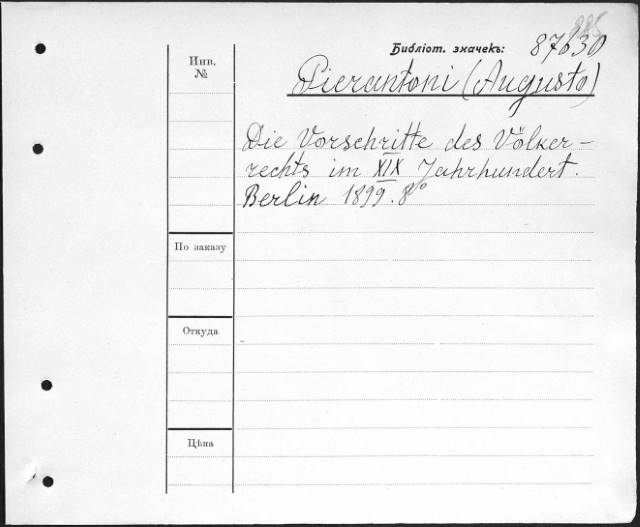 Библіот. значекъ: 87630
Инв.
№
Pierantoni (Augusto)
Die Vorschritte des Völker-
rechts im XIX Jahrhundert.
Berlin 1899. 8°
По заказу
Откуда
Цѣна